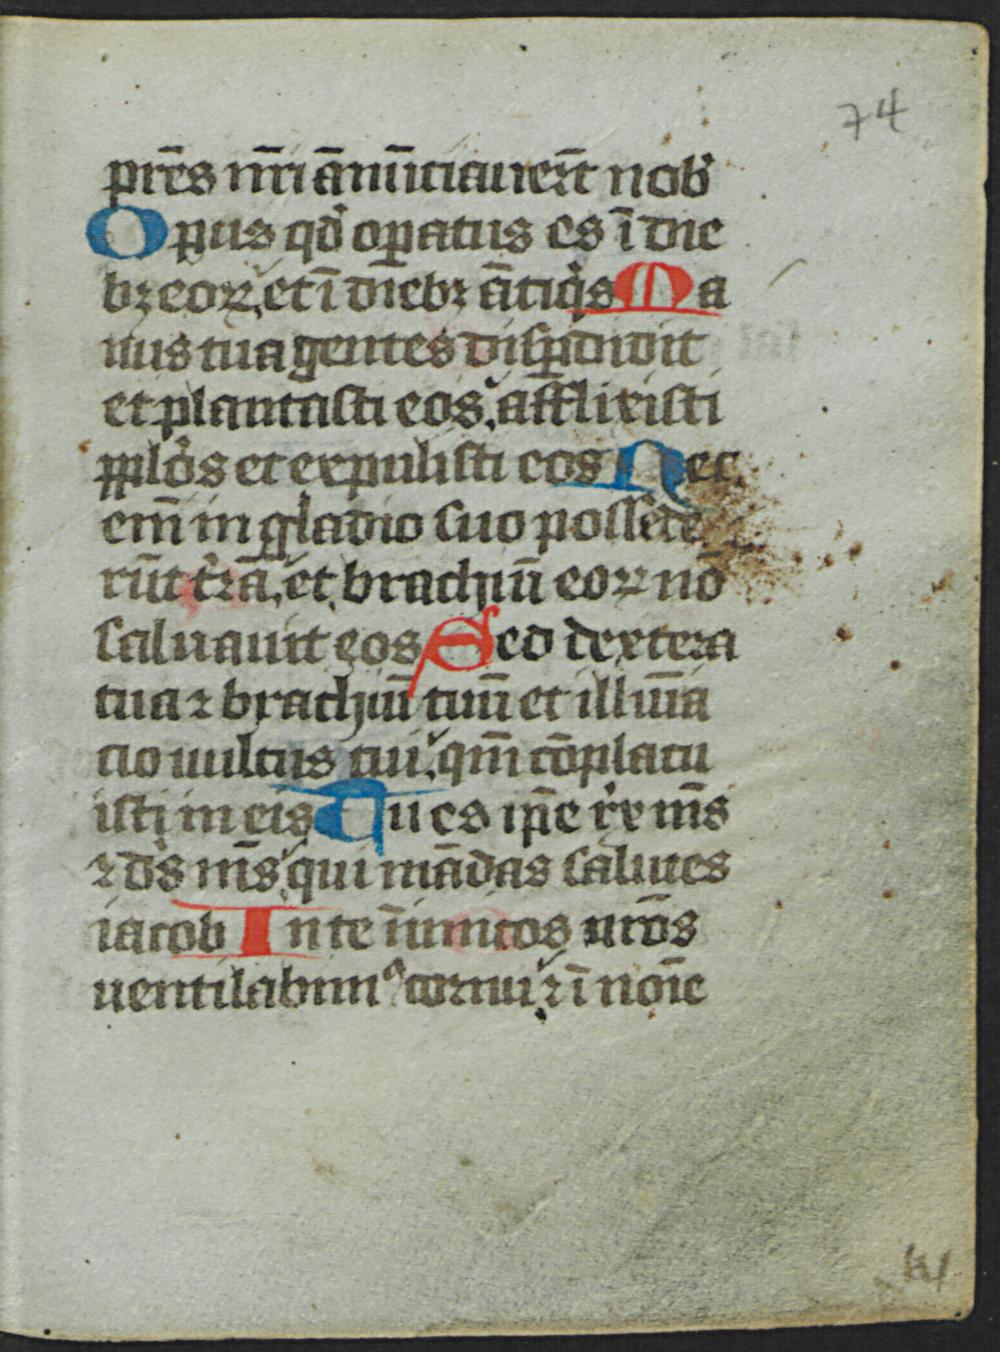 74
pr̄es nr̄i ān̄ūciauer̄t nob̾
Opus qd̾ op̲atus es ī die
bꝫ eoꝝ et ī dīebꝫ āntiq̾s Ma
nus tua gentes disp̲didit
et plantasti eos, afflixisti
pp̲lo̾s et expulisti eos Nec
em̄ in gladio suo possede
rūt t̾rā, et brachiū eoꝝ nō
saluauit eos Sed dextera
tua ⁊ brachiū tuū et illuīa
cio uultus tui, qm̄ cōplacu
isti in eis Tu es ip̄e rex m̄s
⁊ ds̄ m̄s qui mādas salutes
iacob In te īimicos nr̄os
uentilabim⁹ cornu ⁊ ī noīe